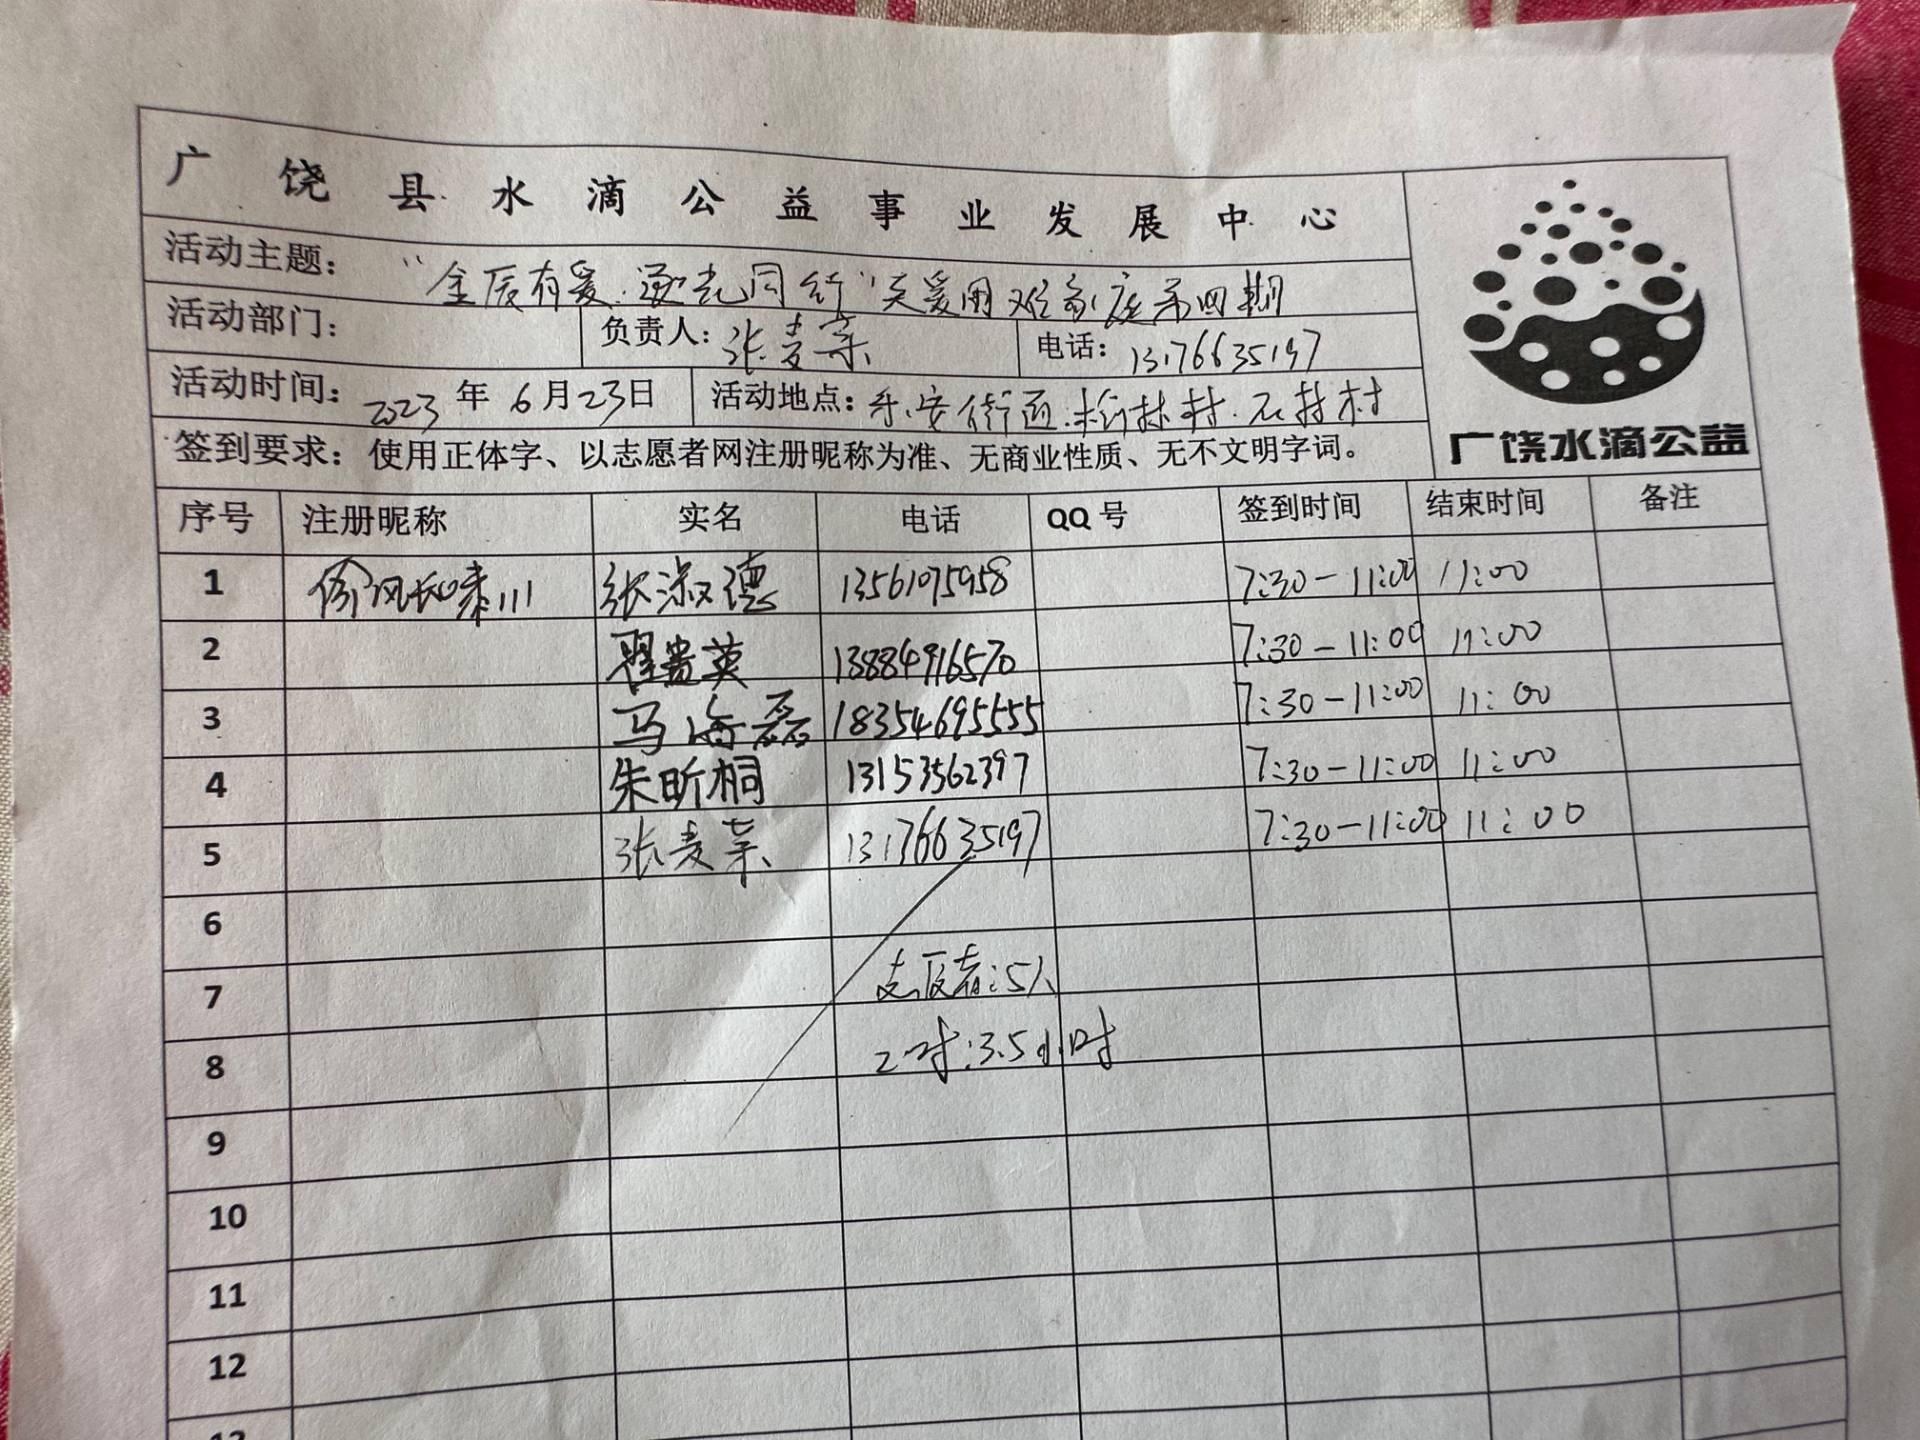 广饶县水滴公益事业发展中心
活动主题："金辰有爱·逐光同行"关爱困难家庭第四期
活动部门： 负责人：张麦亲 电话：13176635197
活动时间：2023年6月23日 活动地点：乐安街道 村
签到要求：使用正体字、以志愿者网注册昵称为准、无商业性质、无不文明字词。
广饶水滴公益
序号 注册昵称 实名 电话 QQ号 签到时间 结束时间 备注
1 张淑德 13561075958 7:30-11:00 11:00
2 翟贵英 13884916570 7:30-11:00 11:00
3 马海磊 18354695555 7:30-11:00 11:00
4 朱昕桐 13153562397 7:30-11:00 11:00
5 张麦亲 13176635197 7:30-11:00 11:00
6
7 志愿者:5人
8 工时:3.5小时
9
10
11
12
13